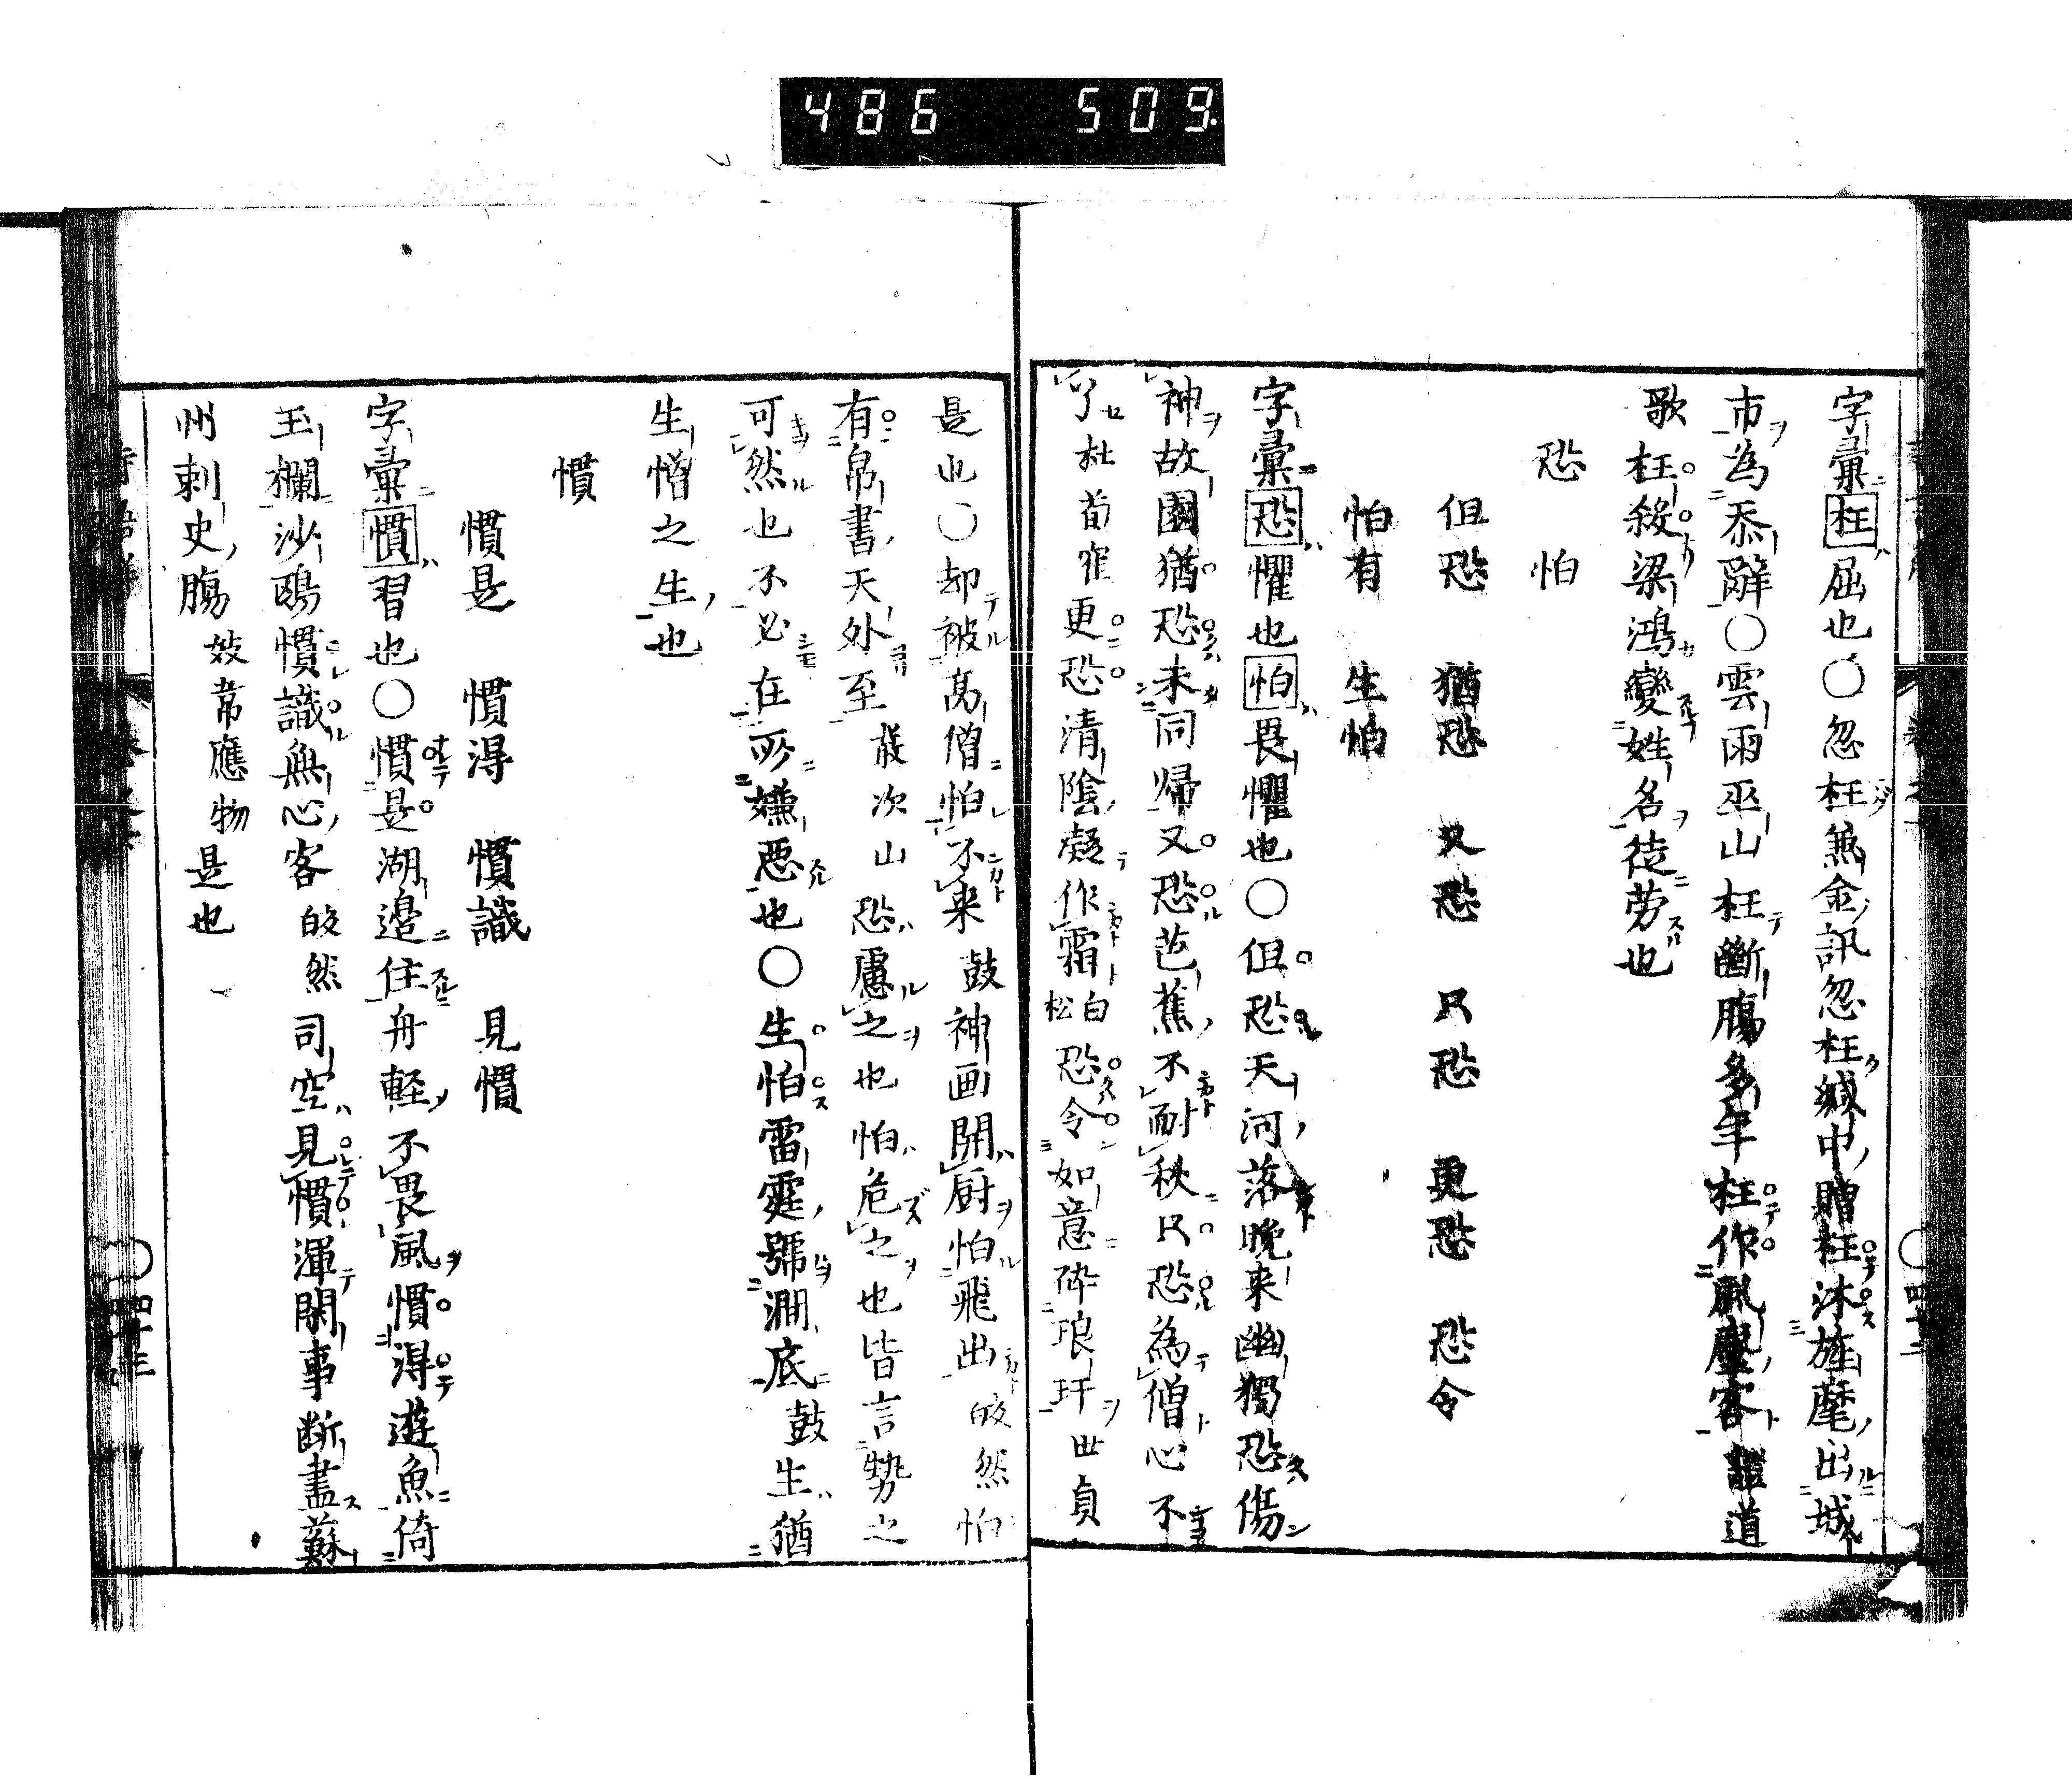 486 509
字彙枉屈也〇忽枉兼金訊忽枉緘中贈枉沐旌麾出城
市為忝辭〇雲雨巫山枉斷膓多年枉作風塵客 道
歌枉殺梁鴻變姓名徒労也
恐 怕
但恐 猶恐 又恐 只恐 更恐 恐令
怕有 生怕
字彙恐懼也怕畏懼也〇但恐天河落晩来幽獨恐傷
神故園猶恐未同帰又恐芭蕉不耐秋只恐為僧心不
了杜荀寉更恐清陰凝作霜白松恐令如意砕琅玕世貞
是也〇却被髙僧怕不来皷神画開厨怕飛出皎然怕
有帛書天外至裴次山恐慮之也怕危之也皆言勢之
可然也不必在所嫌悪也〇生怕雷霆號澗底皷生猶
生憎之生也
慣
慣是 慣得 慣識 見慣
字彙慣習也〇慣是湖邉住舟軽不畏風慣得遊魚倚
玉欄沙鴎慣識無心客皎然司空見慣渾閑事断盡蘇
州刺史膓妓常應物是也
四十三